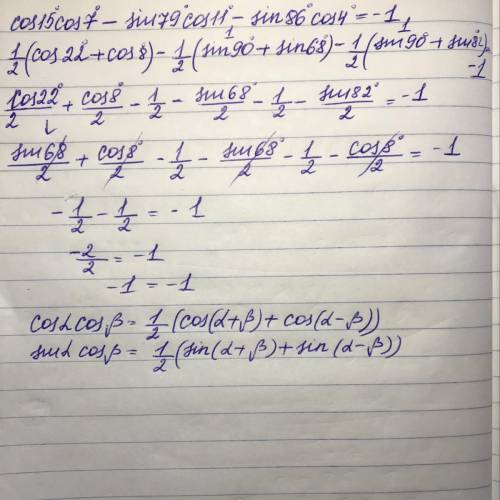 cos15°cos7° - sin79°cos11° - sin86°cos4° = -1
1/2(cos22° + cos8°) - 1/2(sin90° + sin68°) - 1/2(sin90° + sin82°) = -1
cos22°/2 + cos8°/2 - 1/2 - sin68°/2 - 1/2 - sin82°/2 = -1
sin68°/2 + cos8°/2 - 1/2 - sin68°/2 - 1/2 - cos8°/2 = -1
-1/2 - 1/2 = -1
-2/2 = -1
-1 = -1
cosα cosβ = 1/2(cos(α+β) + cos(α-β))
sinα cosβ = 1/2(sin(α+β) + sin(α-β))